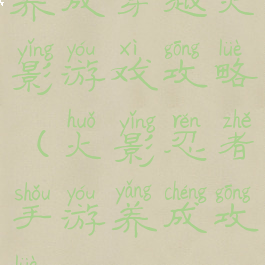 养成穿越火
yǐng yóu xì gōng lüè
影游戏攻略
huǒ yǐng rěn zhě
（火影忍者
shǒu yóu yǎng chéng gōng
手游养成攻